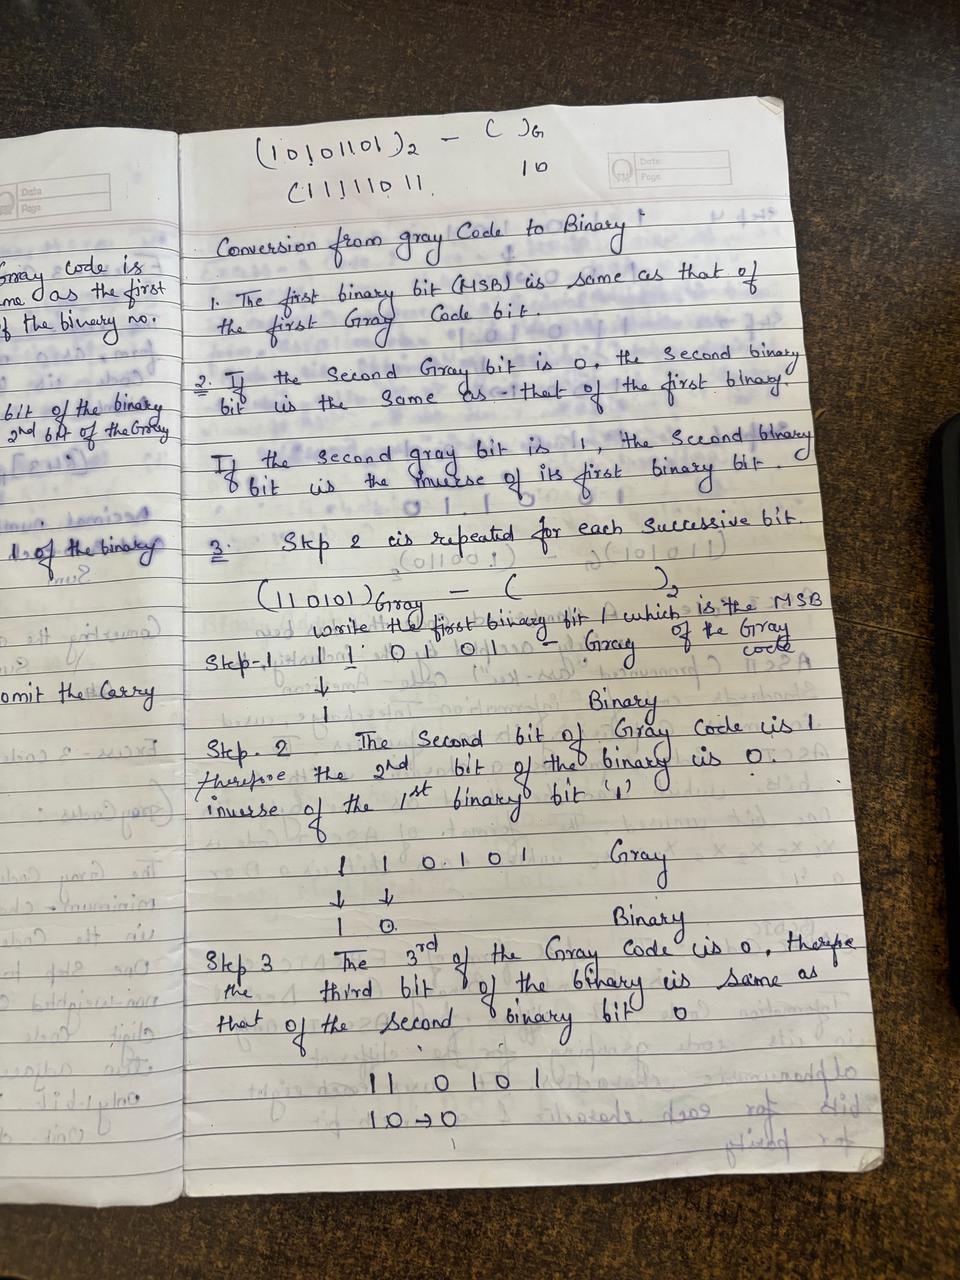 Date
Page
Gray code is
me as the first
of the binary no.
bit of the binary
2nd bit of the Gray
1. of the binary
omit the Carry
(10101101)2 — ( )G
(11111011.
10
Date:
Page
Conversion from gray Code to Binary
1. The first binary bit (MSB) is same as that of
the first Gray Code bit.
2. If the second Gray bit is 0, the second binary
bit is the same as that of the first binary.
If the second gray bit is 1, the second binary
bit is the inverse of its first binary bit.
3. Step 2 is repeated for each successive bit.
(110101)Gray — ( )2
write the first binary bit 1 which is the MSB
of the Gray
code
Step-1 1 1 0 1 0 1 — Gray
↓
1 Binary
Step-2 The Second bit of Gray Code is 1
therefore the 2nd bit of the binary is 0.
inverse of the 1st binary bit '1'
1 1 0 1 0 1 Gray
↓ ↓
1 0. Binary
Step 3 The 3rd of the Gray Code is 0, therefore
the third bit of the binary is same as
that of the second binary bit 0
1 1 0 1 0 1
1 0 → 0